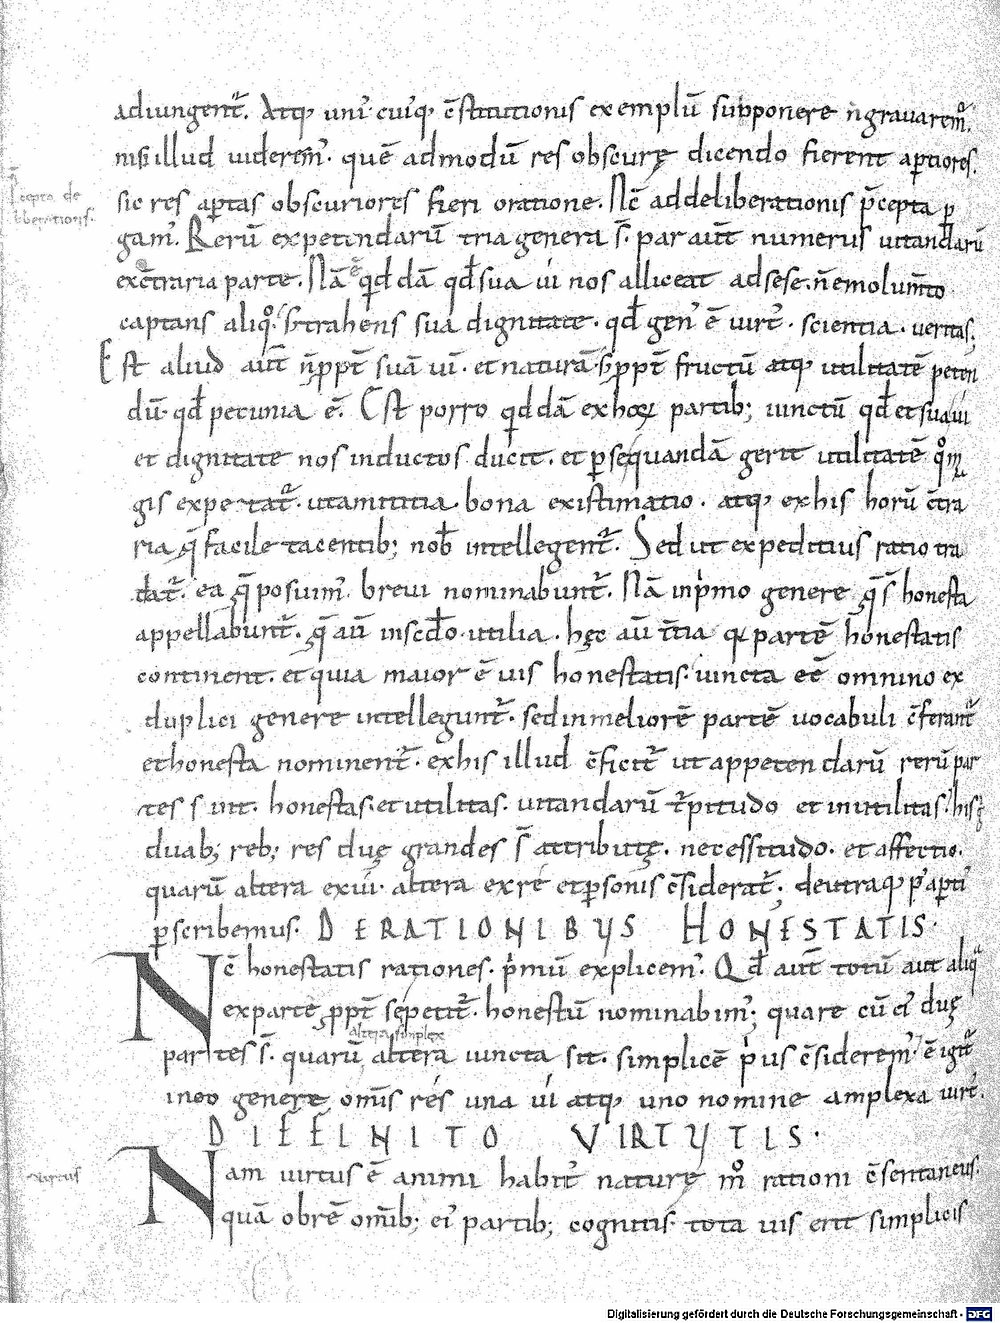 adiungent̄. Atq; uni' cuiq; c̄stitutionis exemplū supponere n̄ grauarem̄.
nisi illud uiderem'. quē admodū res obscurę dicendo fierent apertiores.
p̄cepta de
liberationis.
sic res apertas obscuriores fieri oratione. Nc̄ ad deliberationis p̄cepta p
gam'. Rerū expetendarū tria genera s̄. par aut̄ numerus uitandarū
ex c̄traria parte. Nā ē qd dā qđ sua ui nos alliceat ad sese. n̄ emolum̄to
captans aliq̊. s; trahens sua dignitate. qđ gen' ē uirt'. scientia. ueritas.
Est aliud aut̄ n̄ ppt̄ suā ui. et naturā. s; ppt̄ fructū atq; utilitatē peten
dū. qđ pecunia ē. Est porro qd dā ex hoꝝ partib; iunctū qđ et sua ui
et dignitate nos inductos ducit. et p̄ se quandā gerit utilitatē q̊ m̄
gis expetat̄. ut amicitia. bona existimatio. atq; ex his horū c̄tra
ria q̄ facile tacentib; nob̄ intellegent̄. Sed ut expeditius ratio tra
dat̄. ea q̄ posuim' breui nominabunt̄. Nā in p̄mo genere q̄ s̄ honesta
appellabunt̄. q̄ aū in scd̄o. utilia. hęc aū t̄tia q̄ partē honestatis
continent. et quia maior ē uis honestatis. iuncta eē omnino ex
duplici genere intellegunt̄. sed in meliorē partē uocabuli c̄ferant̄
et honesta nominent̄. ex his illud c̄ficit̄ ut appetendarū rerū par
tes sint. honestas. et utilitas. uitandarū t̄pitudo et inutilitas. his
duab; reb; res duę grandes s̄ attributę. necessitudo. et affectio.
quarū altera ex ui. altera ex re et p̄sonis c̄siderat̄. de utraq; p' apti'
p̄scribemus. DE RATIONIBVS HONESTATIS.
Nc̄ honestatis rationes. p̄mū explicem'. Qđ aut̄ totū aut aliq̄
ex parte ppt̄ se petit̄. honestū nominabim'; quare cū ei' duę
altera simplex
partes s̄. quarū altera iuncta sit. simplicē p̄us c̄siderem'. ē igit̄
in eo genere om̄s res una ui atq; uno nomine amplexa uirt'.
DIFFINITO VIRTVTIS.
uirtus
Nam uirtus ē animi habit' naturę m̊ rationi c̄sentaneus.
quā obrē om̄ib; ei' partib; cognitis tota uis erit simplicis
Digitalisierung gefördert durch die Deutsche Forschungsgemeinschaft - DFG